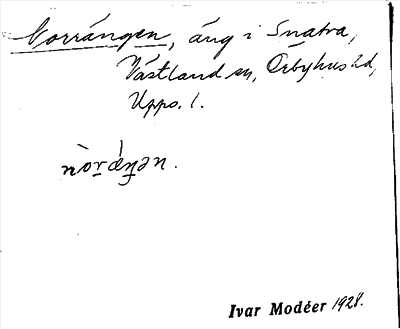 Norrängen, äng i Snatra,
Västland sn, Örbyhus hd,
Upps. l.
nòrǽŋən.
Ivar Modéer 1928.